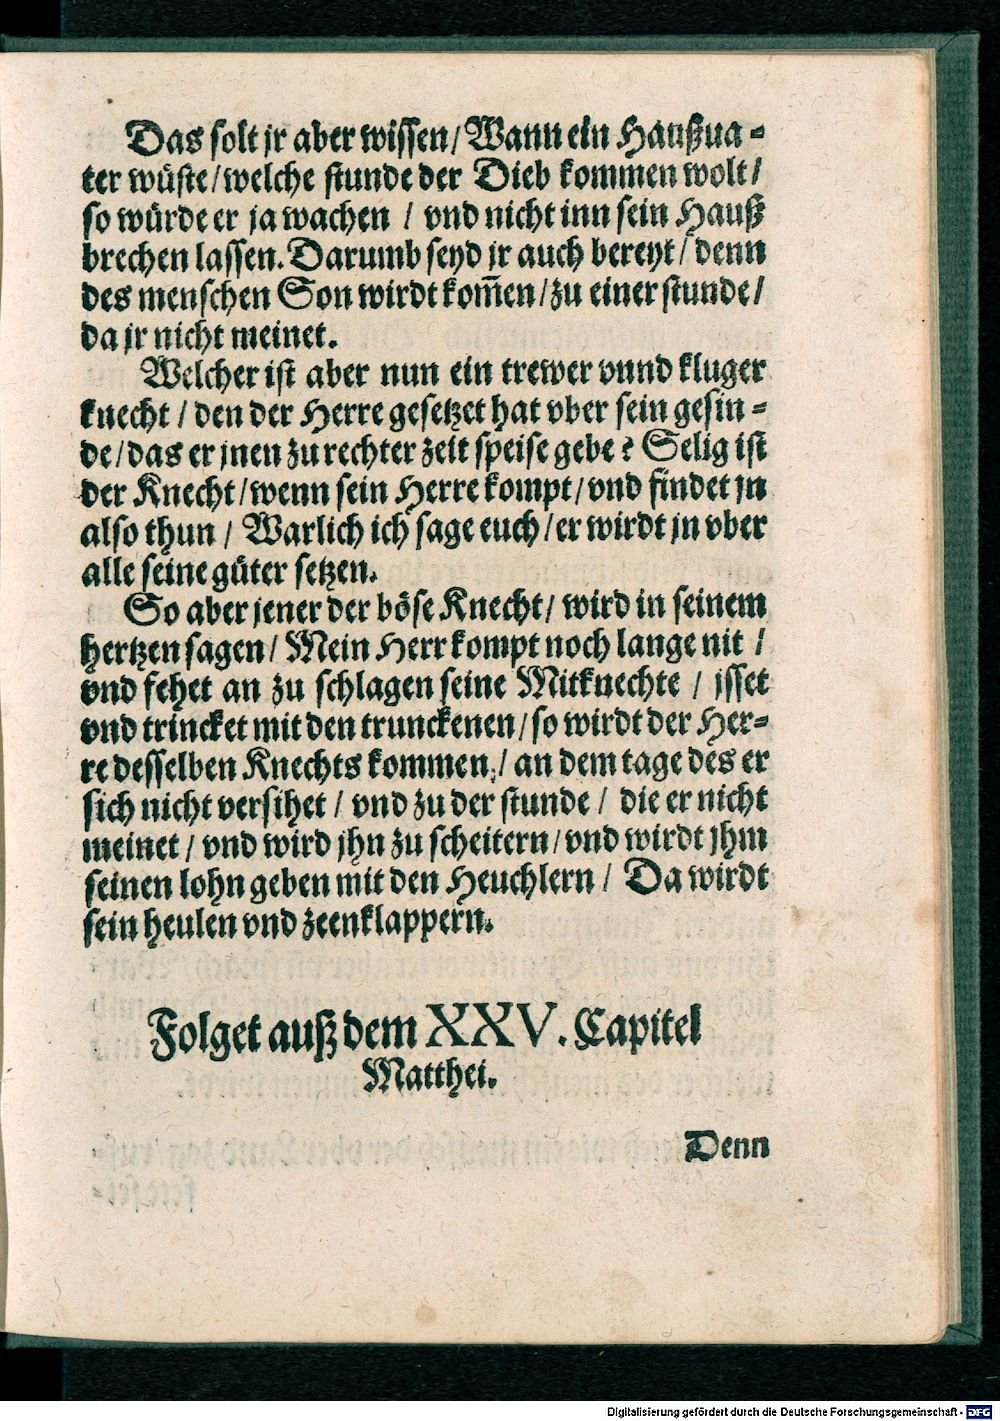 Das solt jr aber wissen/ Wann ein Haußua-
ter wüste/ welche stunde der Dieb kommen wolt/
so würde er ja wachen / vnd nicht inn sein Hauß
brechen lassen. Darumb seyd jr auch bereyt/ denn
des menschen Son wirdt kom̄en/ zu einer stunde/
da jr nicht meinet.
Welcher ist aber nun ein trewer vnnd kluger
knecht / den der Herre gesetzet hat vber sein gesin-
de/ das er jnen zu rechter zeit speise gebe? Selig ist
der Knecht/ wenn sein Herre kompt/ vnd findet jn
also thun / Warlich ich sage euch/ er wirdt jn vber
alle seine güter setzen.
So aber jener der böse Knecht/ wird in seinem
hertzen sagen/ Mein Herr kompt noch lange nit /
vnd fehet an zu schlagen seine Mitknechte / jsset
vnd trincket mit den trunckenen/ so wirdt der Her-
re desselben Knechts kommen,/ an dem tage des er
sich nicht versihet / vnd zu der stunde / die er nicht
meinet / vnd wird jhn zu scheitern/ vnd wirdt jhm
seinen lohn geben mit den Heuchlern / Da wirdt
sein heulen vnd zeenklappern.
Folget auß dem XXV. Capitel
Matthei.
Denn
Digitalisierung gefördert durch die Deutsche Forschungsgemeinschaft - DFG